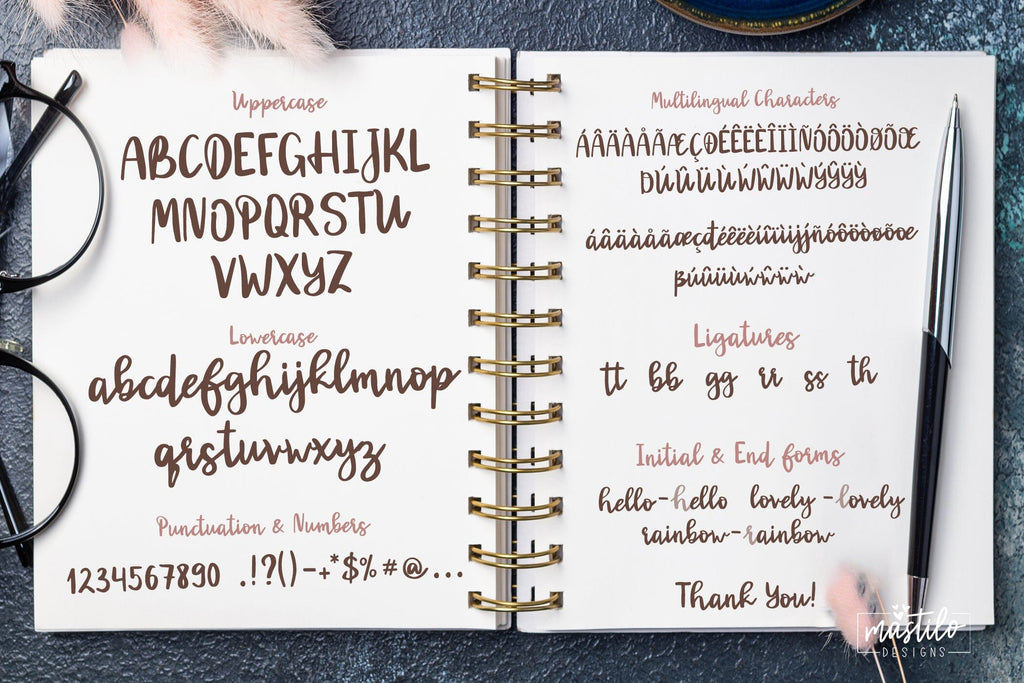 Uppercase
ABCDEFGHIJKL
MNOPQRSTU
VWXYZ
Lowercase
abcdefghijklmnop
qrstuvwxyz
Punctuation & Numbers
1234567890 .!?()-+*$%#@...
Multilingual Characters
Ligatures
tt bb gg rr ss th
Initial & End forms
hello-hello lovely-lovely
rainbow-rainbow
Thank You!
mastilo
DESIGNS